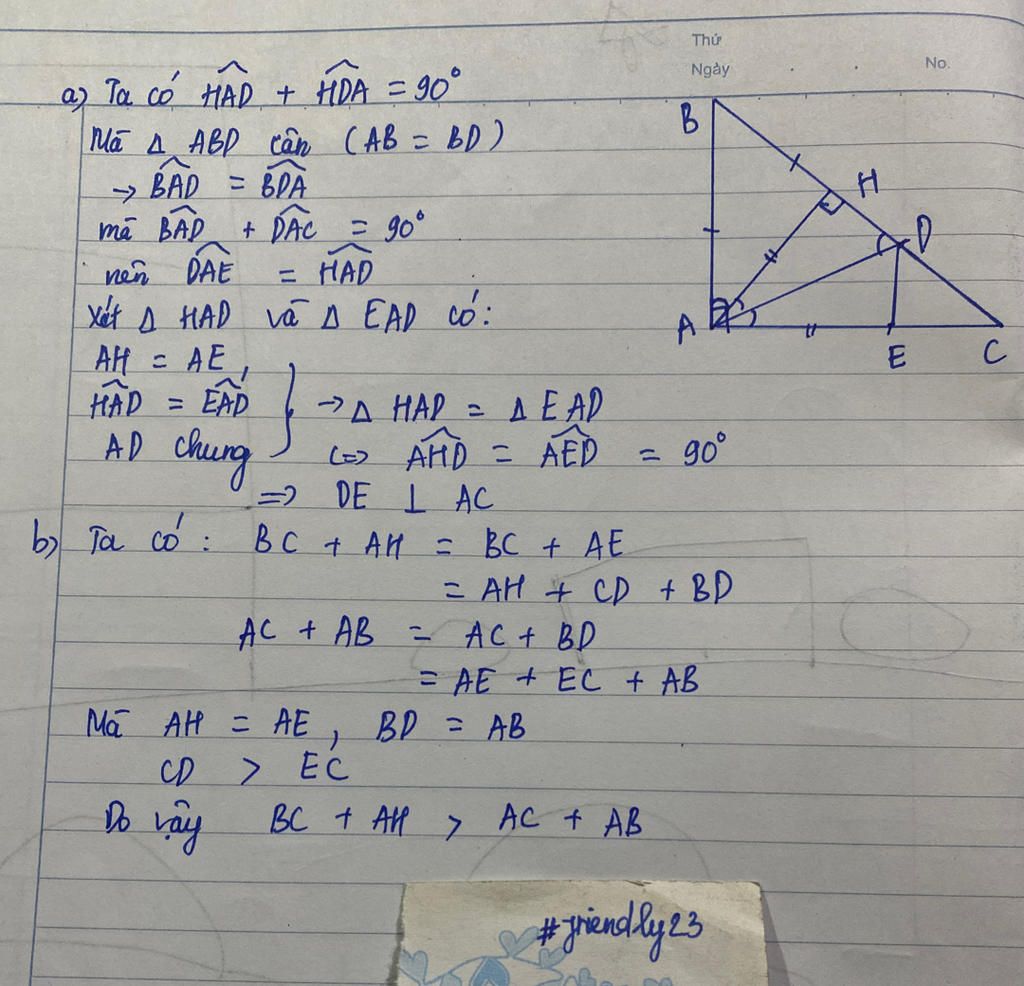 Thứ
Ngày . . No.
a) Ta có HAD + HDA = 90°
Mà Δ ABD cân (AB = BD)
→ BAD = BDA
mà BAD + DAC = 90°
nên DAE = HAD
Xét Δ HAD và Δ EAD có:
AH = AE,
HAD = EAD } → Δ HAD = Δ EAD
AD chung <=> AHD = AED = 90°
=> DE ⊥ AC
b) Ta có: BC + AH = BC + AE
= AH + CD + BD
AC + AB = AC + BD
= AE + EC + AB
Mà AH = AE, BD = AB
CD > EC
Do vậy BC + AH > AC + AB
B
H
D
A
E
C
#friendly23